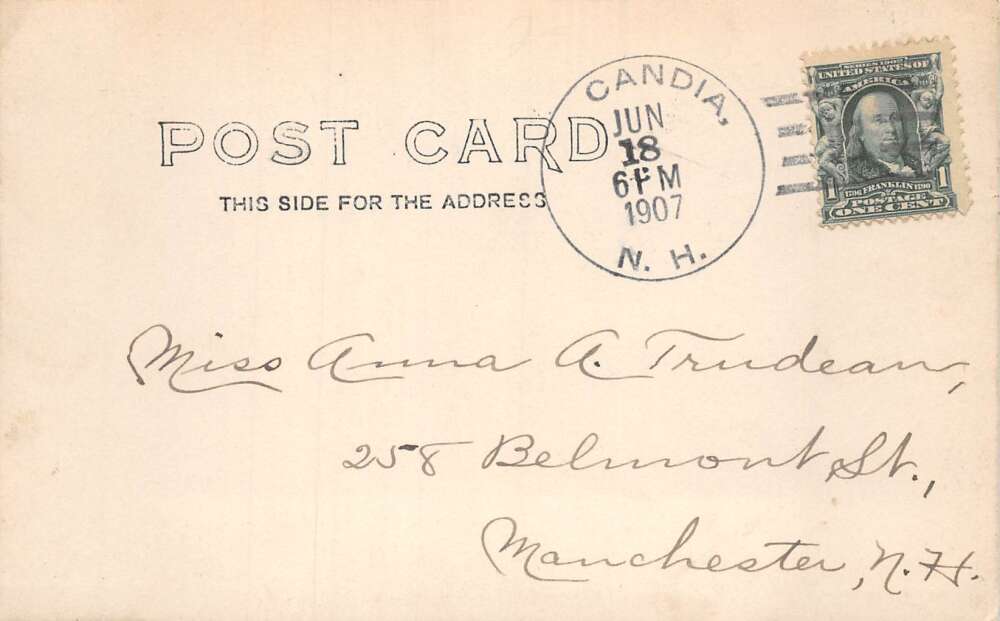 POST CARD
THIS SIDE FOR THE ADDRESS
CANDIA,
JUN
18
6 PM
1907
N. H.
SERIES 1902
UNITED STATES OF
AMERICA
1706 FRANKLIN 1790
1 POSTAGE 1
ONE CENT
Miss Anna A. Trudeau,
258 Belmont St.,
Manchester, N.H.